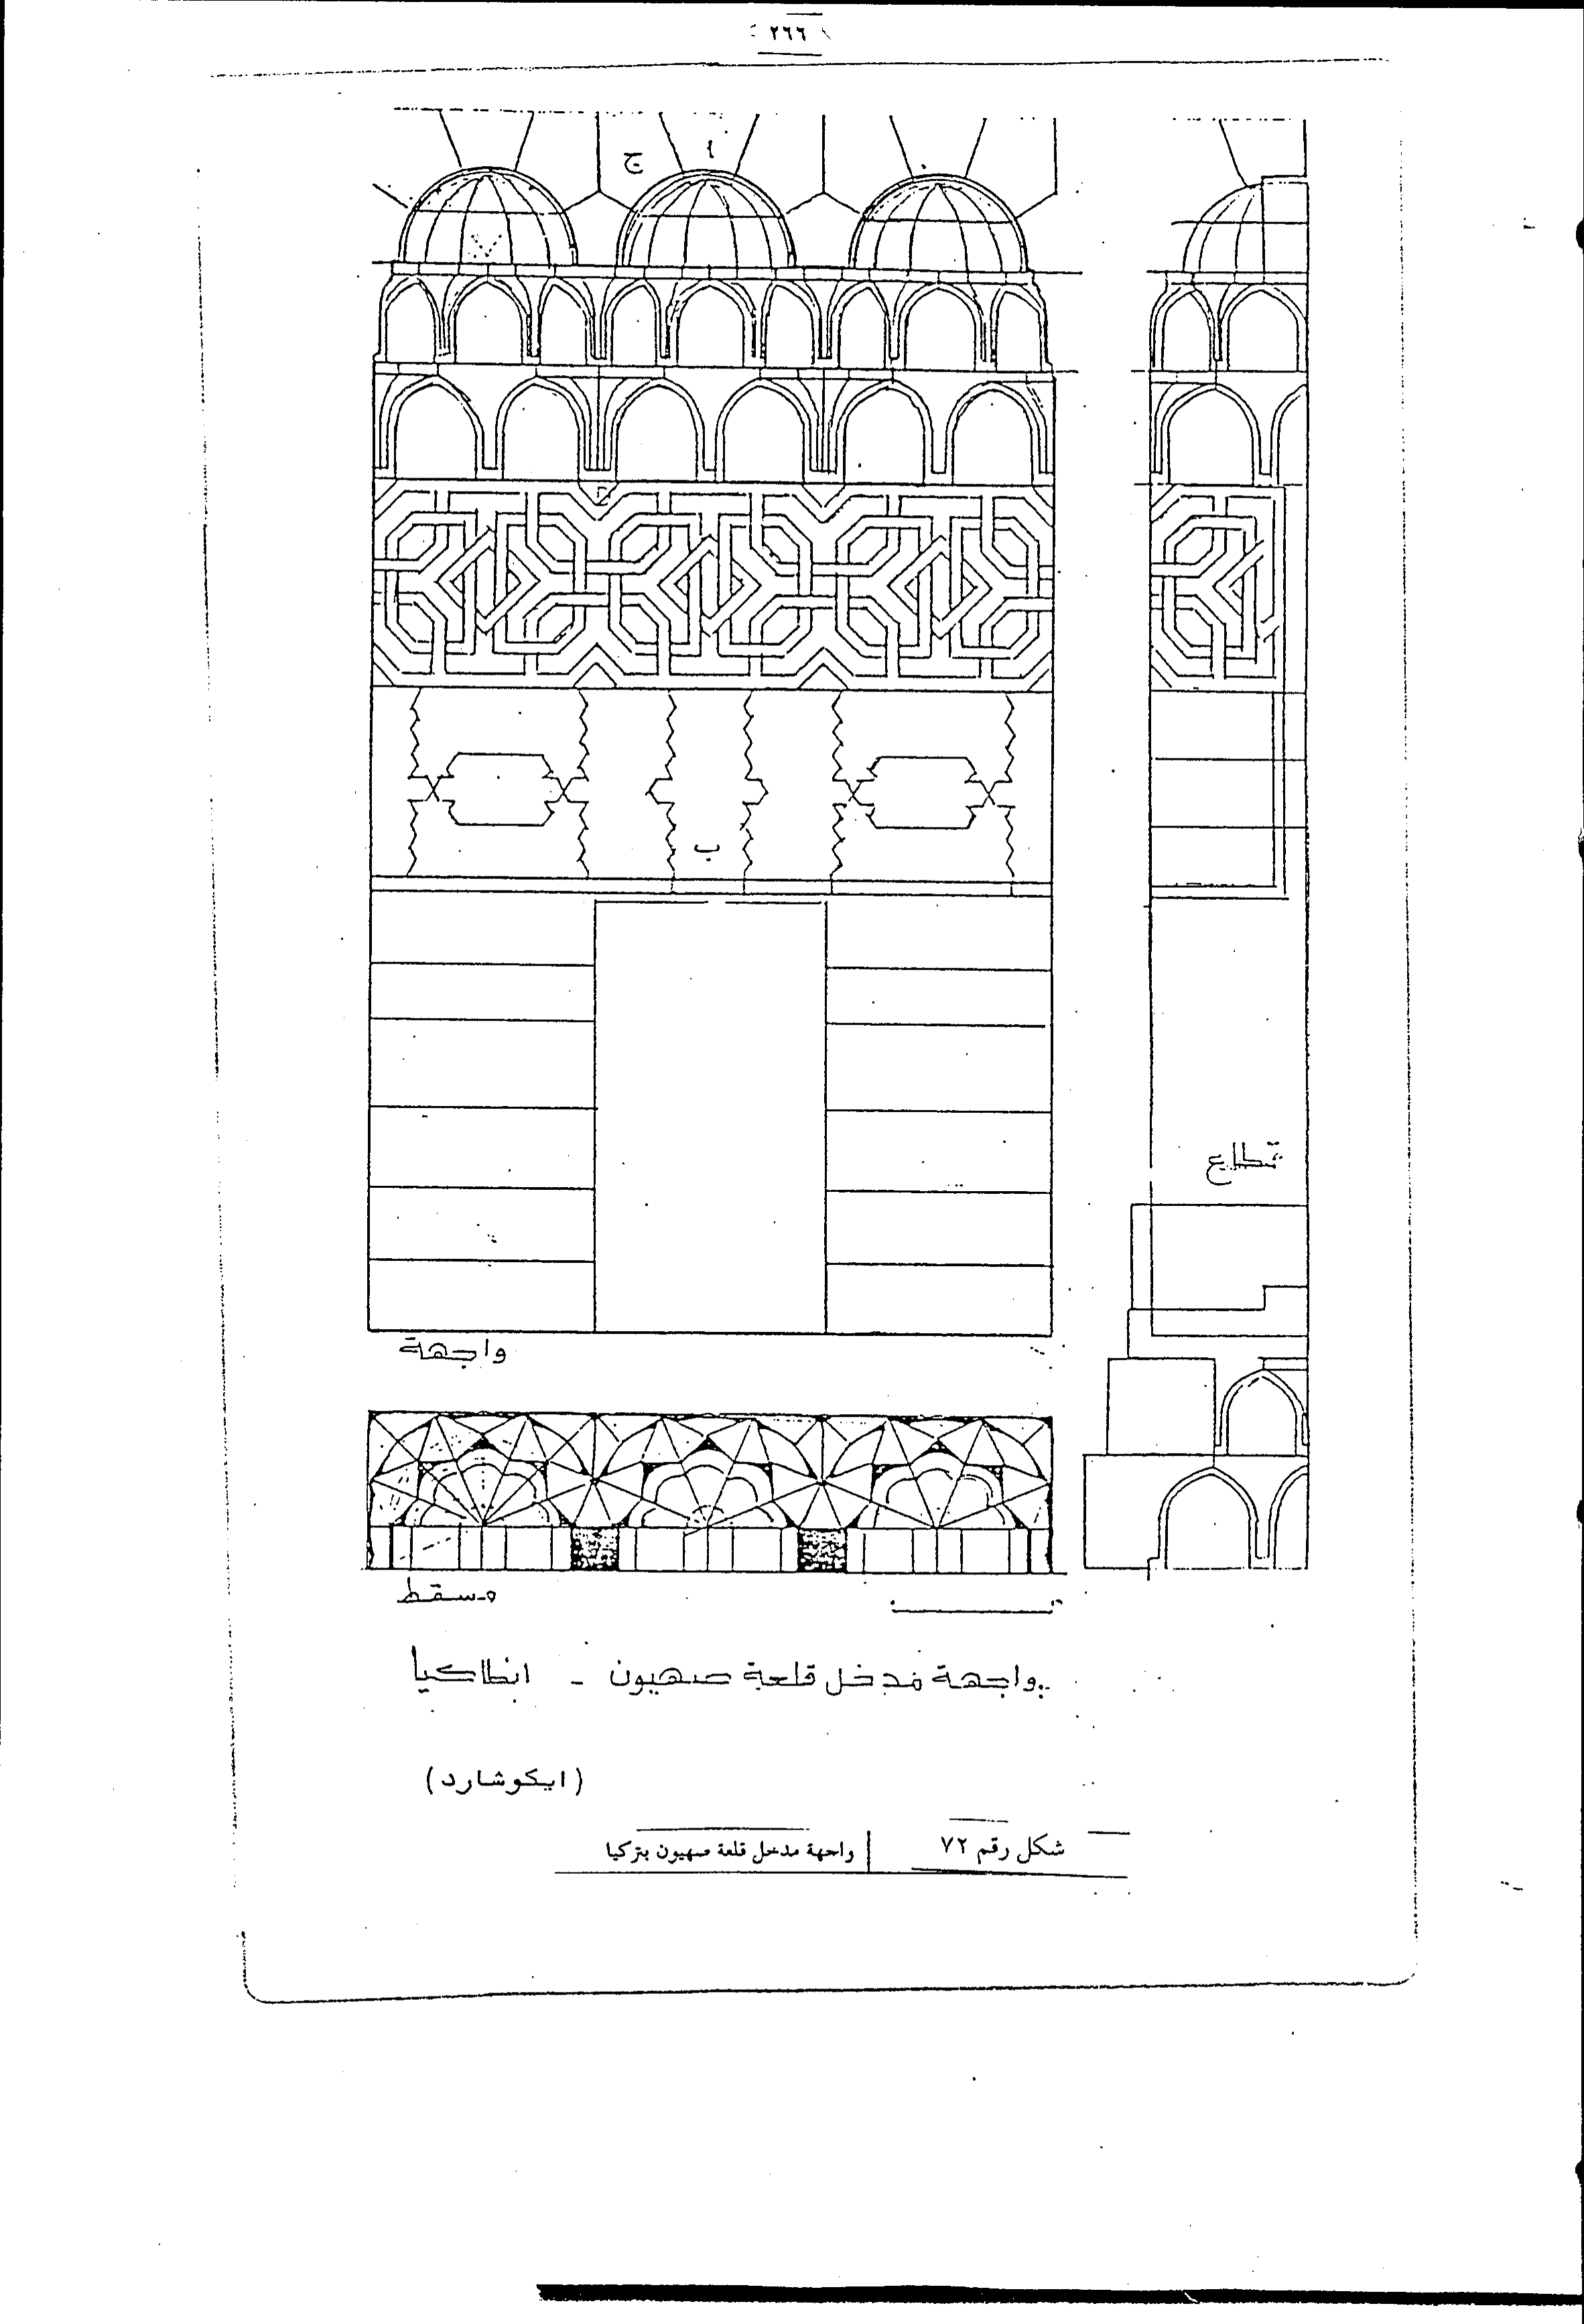 ٢٦٦
ا
ج
ب
قطاع
واجهة
مسقط
واجهة مدخل قلعة صهيون - انطاكيا
(ايكوشارد)
شكل رقم ٧٢ | واجهة مدخل قلعة صهيون بتركيا